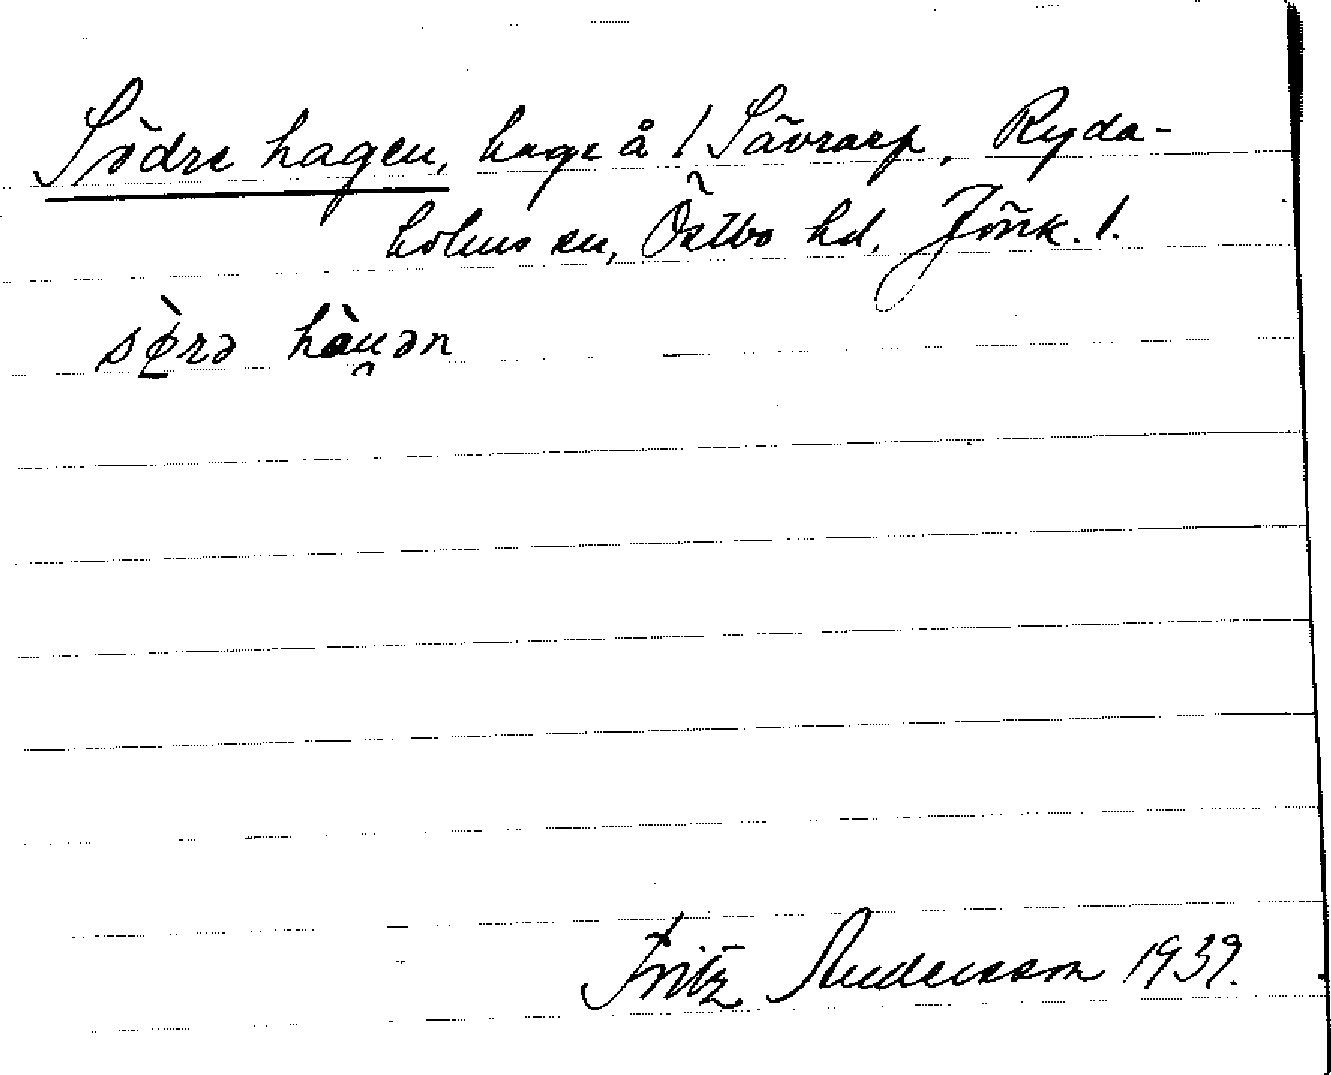 Södre hagen, hage å / Sävrarp, Ryda-
holms sn, Östbo hd, Jönk. l.
sø̠̀rə hàu̯ən
Fritz Andersson 1939.